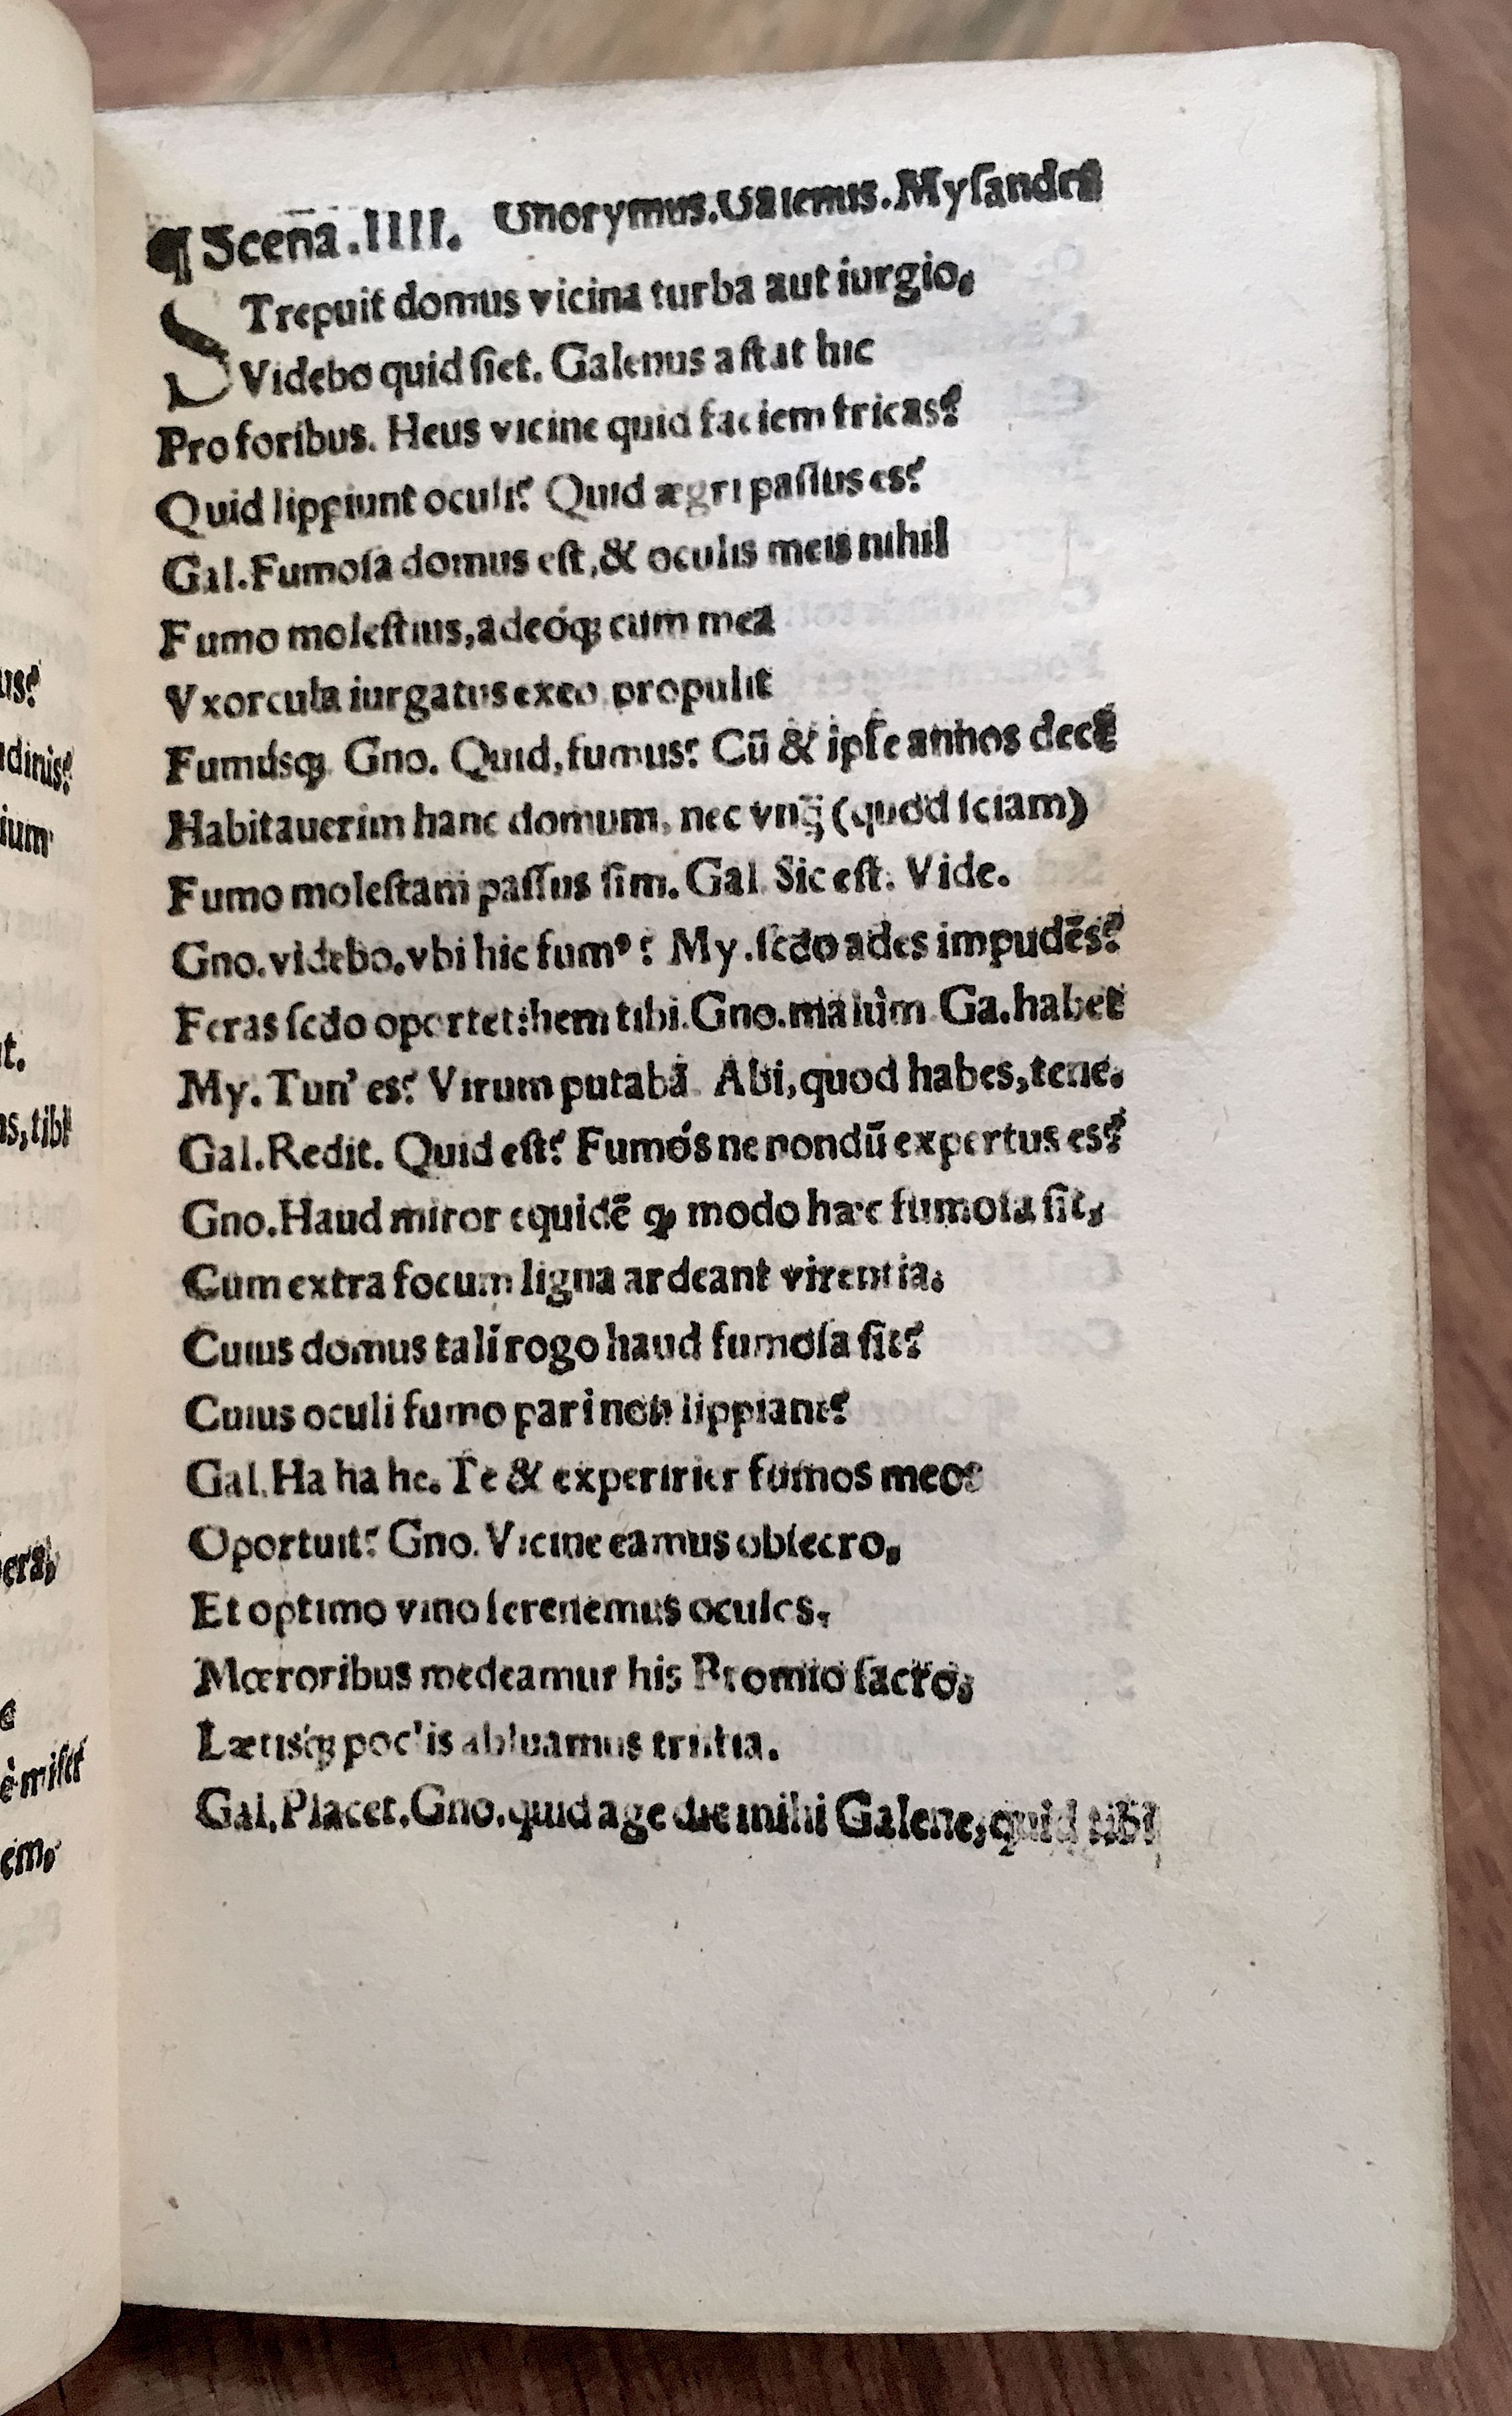 us?
udinis?
ium
it.
us, tibi
e
è miſcet
em,
¶ Scena .IIII. Gnorymus. Galenus. Myſandra
STrepuit domus vicina turba aut iurgio,
Videbo quid ſiet. Galenus aſtat hic
Pro foribus. Heus vicine quid faciem fricas?
Quid lippiunt oculi? Quid ægri paſſus es?
Gal. Fumoſa domus eſt, & oculis meis nihil
Fumo moleſtius, adeóq; cum mea
Vxorcula iurgatus exeo, propulit
Fumúsq;. Gno. Quid, fumus? Cũ & ipſe annos decẽ
Habitauerim hanc domum, nec vnq̃ (quod ſciam)
Fumo moleſtam paſſus ſim. Gal. Sic eſt. Vide.
Gno. videbo. vbi hic fumꝰ? My. ſcdo ades impudẽs?
Feras ſcdo oportet: hem tibi. Gno. malùm. Ga. habet
My. Tun' es? Virum putabã. Abi, quod habes, tene.
Gal. Redit. Quid eſt? Fumós ne nondũ expertus es?
Gno. Haud miror equidẽ ꝙ modo hæc fumoſa ſit,
Cum extra focum ligna ardeant virentia,
Cuius domus tali rogo haud fumoſa ſit?
Cuius oculi fumo pari non lippiant?
Gal. Ha ha he. Te & experirier fumos meos
Oportuit? Gno. Vicine eamus obſecro,
Et optimo vino ſerenemus oculos,
Mœroribus medeamur his Bromio ſacro,
Lætisq́; poc'lis abluamus triſtia.
Gal. Placet. Gno. quid age dic mihi Galene, quid tibi